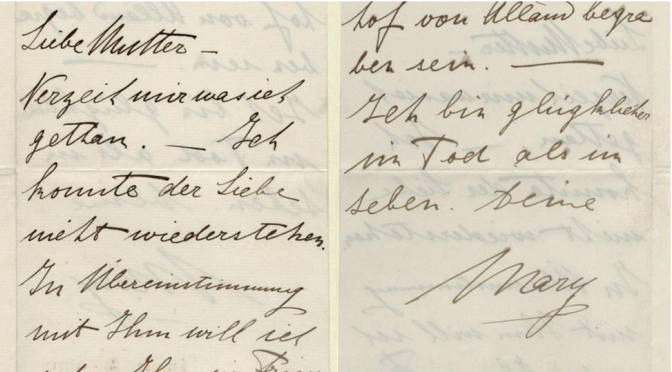 Liebe Mutter –
Verzeih mir was ich
gethan. – Ich
konnte der Liebe
nicht wiederstehen.
In Übereinstimmung
mit Ihm will ich
Ihm im
hof von Alland begra
ben sein. —
Ich bin glücklicher
im Tod als im
Leben. Deine
Mary